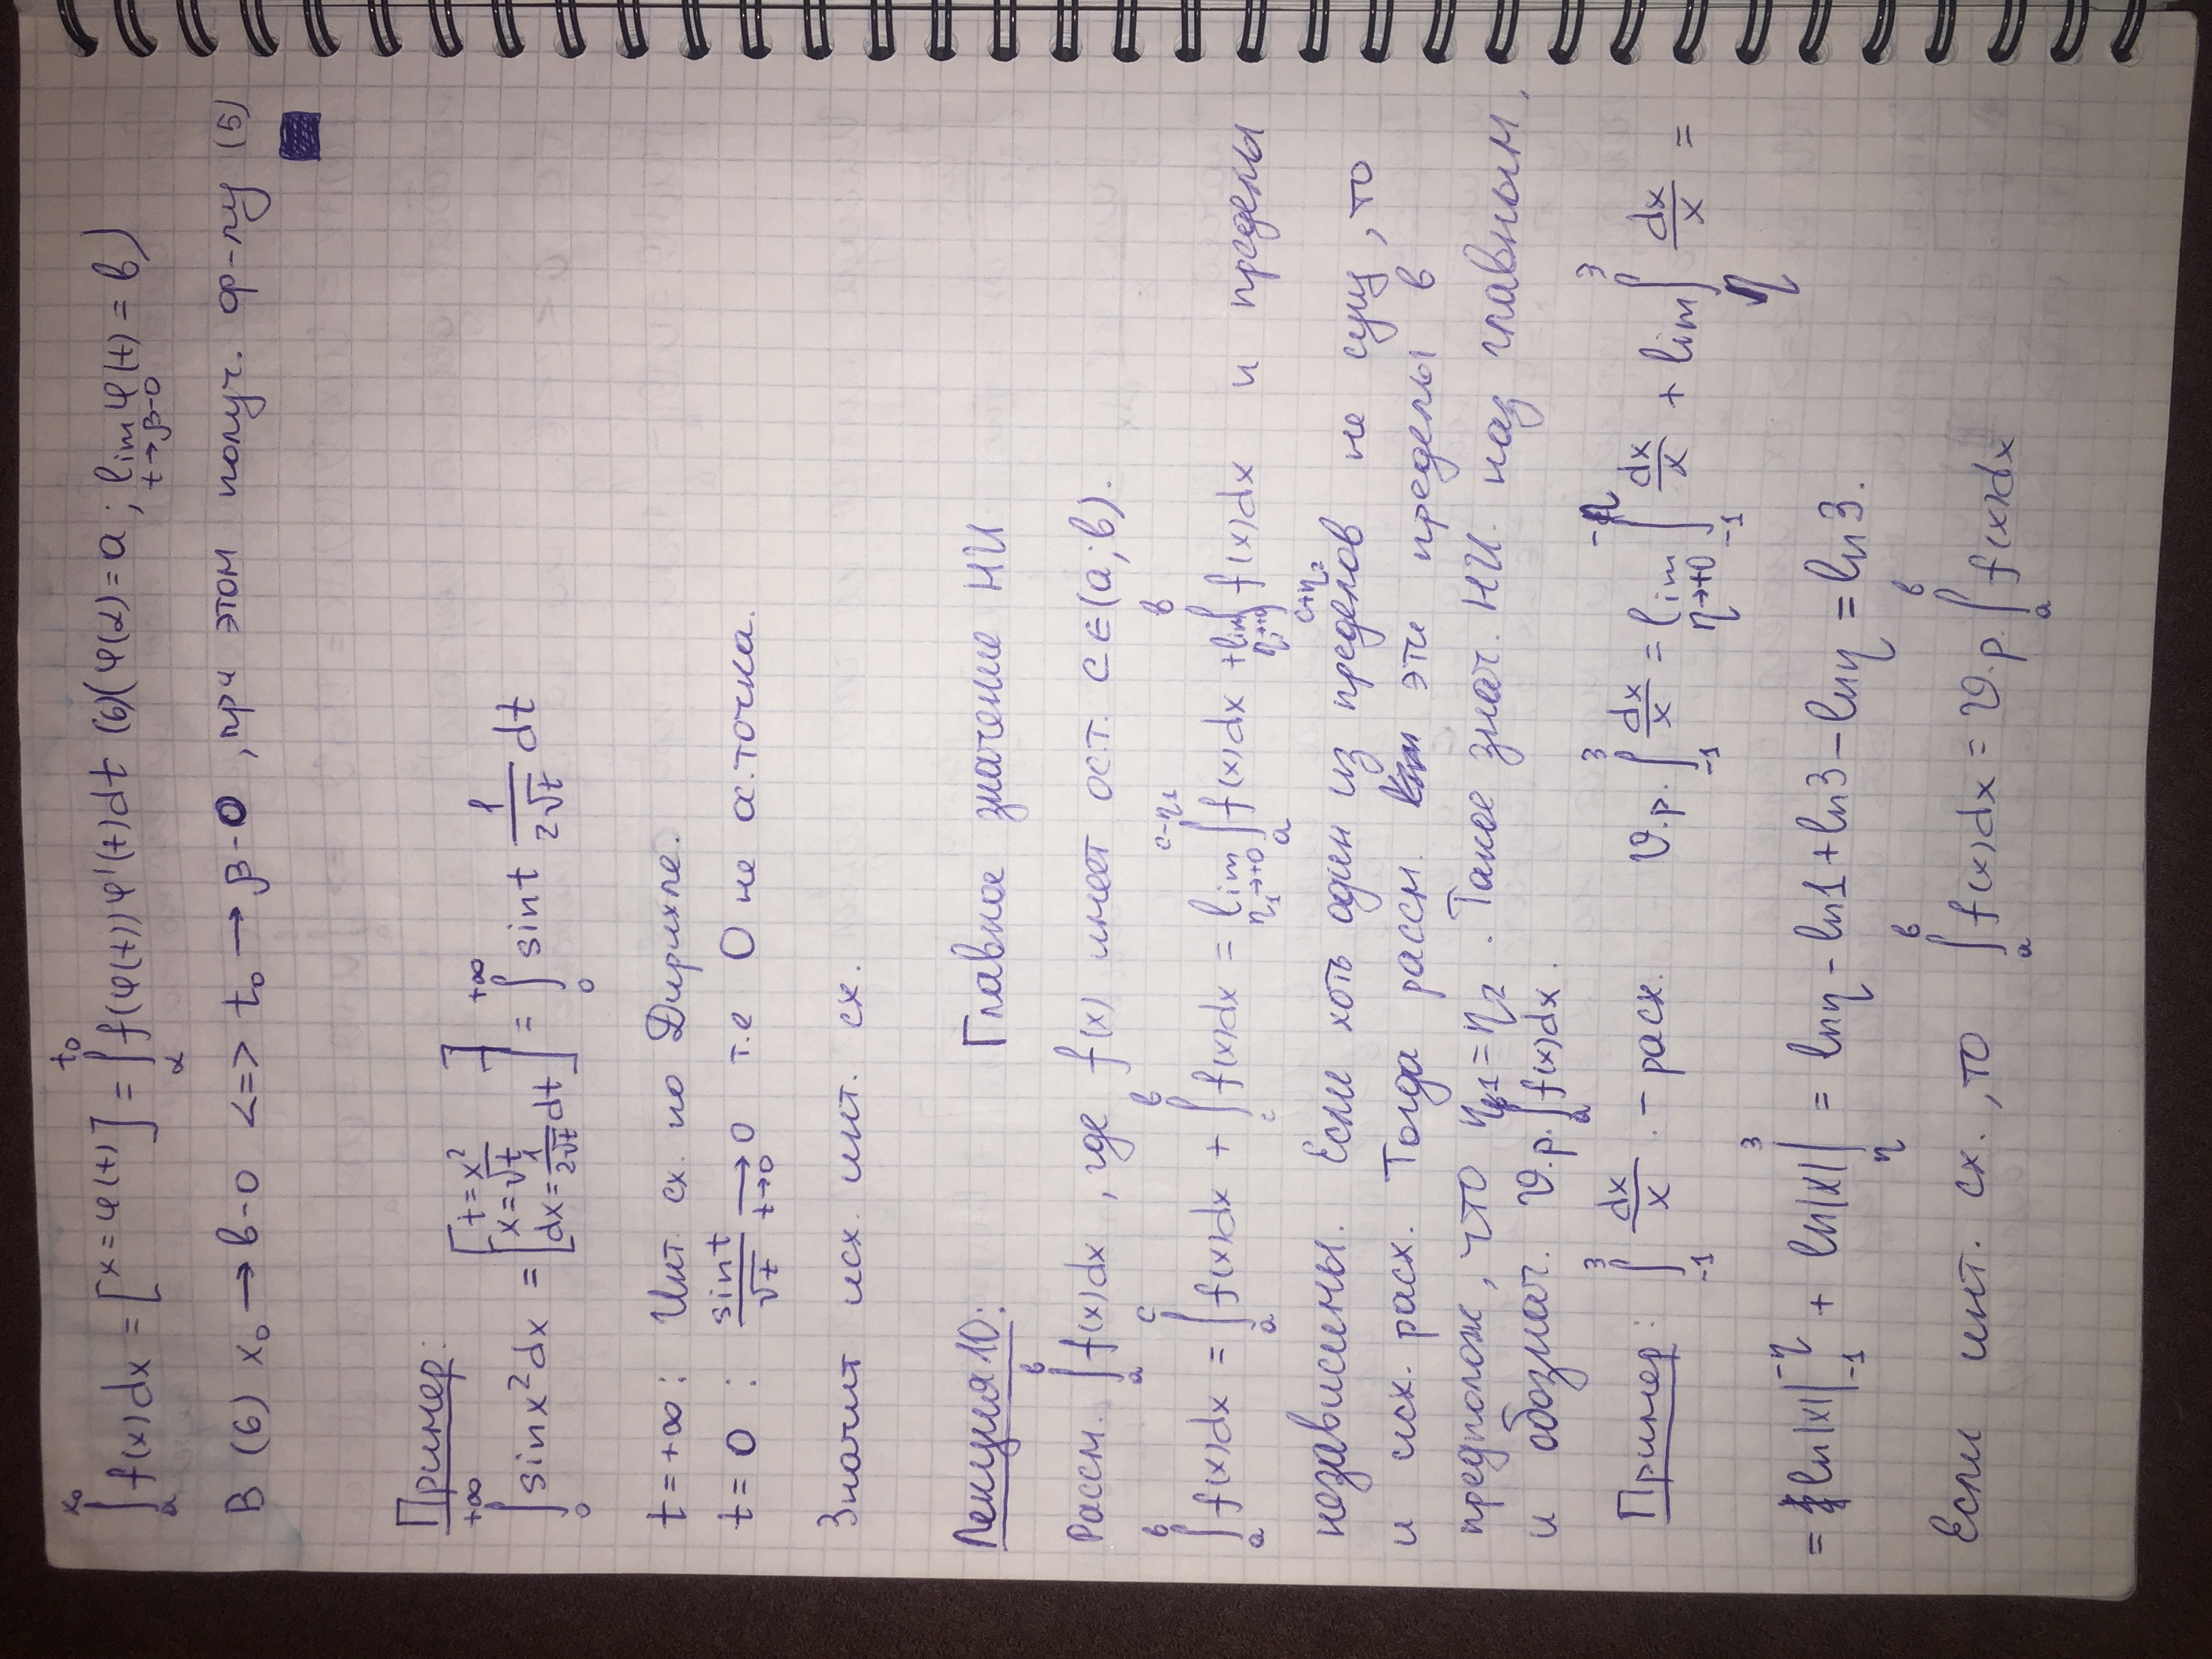 ∫_a^{x₀} f(x)dx = [x = φ(t)] = ∫_α^{t₀} f(φ(t))φ'(t)dt (6) (φ(α) = a; lim_{t→β-0} φ(t) = b)
В (6) x₀ → b-0 <=> t₀ → β-0, при этом получ. ф-лу (5)
Пример:
∫_0^{+∞} sinx²dx = [t = x² x = √t dx = 1/(2√t) dt] = ∫_0^{+∞} sint 1/(2√t) dt
t = +∞ : Инт. сх. по Дирихле.
t = 0 : sint/√t →_{t→0} 0 т.е 0 не ос.точка.
Значит исх. инт. сх.
Лекция 10: Главное значение НИ
Рассм. ∫_a^b f(x)dx, где f(x) имеет ос.т. c∈(a;b).
∫_a^b f(x)dx = ∫_a^c f(x)dx + ∫_c^b f(x)dx = lim_{η₁→+0} ∫_a^{c-η₁} f(x)dx + lim_{η₂→+0} ∫_{c+η₂}^b f(x)dx и пределы
независимы. Если хоть один из пределов не сущ, то
и исх. расх. Тогда рассм. эти пределы в
предполож, что η₁ = η₂. Такое знач. НИ. наз главным,
и обознач. v.p. ∫_a^b f(x)dx.
Пример: ∫_{-1}^3 dx/x - расх. v.p. ∫_{-1}^3 dx/x = lim_{η→+0} ∫_{-1}^{-η} dx/x + lim ∫_η^3 dx/x =
= ln|x| |_{-1}^{-η} + ln|x| |_η^3 = lnη - ln1 + ln3 - lnη = ln3.
Если инт. сх., то ∫_a^b f(x)dx = v.p. ∫_a^b f(x)dx